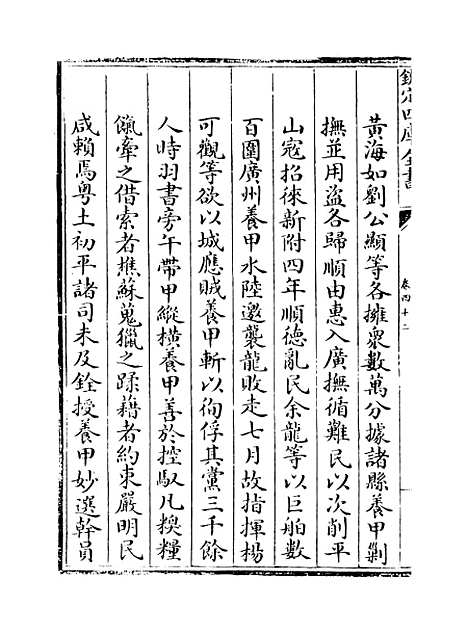 欽定四庫全書
卷四十二
黄海如劉公顯等各擁衆數萬分據諸縣養甲剿
撫並用盜各歸順由惠入廣撫循難民以次削平
山寇招徠新附四年順德亂民余龍等以巨舶數
百圍廣州養甲水陸邀襲龍敗走七月故指揮楊
可觀等欲以城應賊養甲斬以徇俘其黨三千餘
人時羽書旁午帶甲縱横養甲善於控馭凡糗糧
餼牽之借索者樵蘇蒐獵之蹂藉者約束嚴明民
咸賴焉粤土初平諸司未及銓授養甲妙選幹員